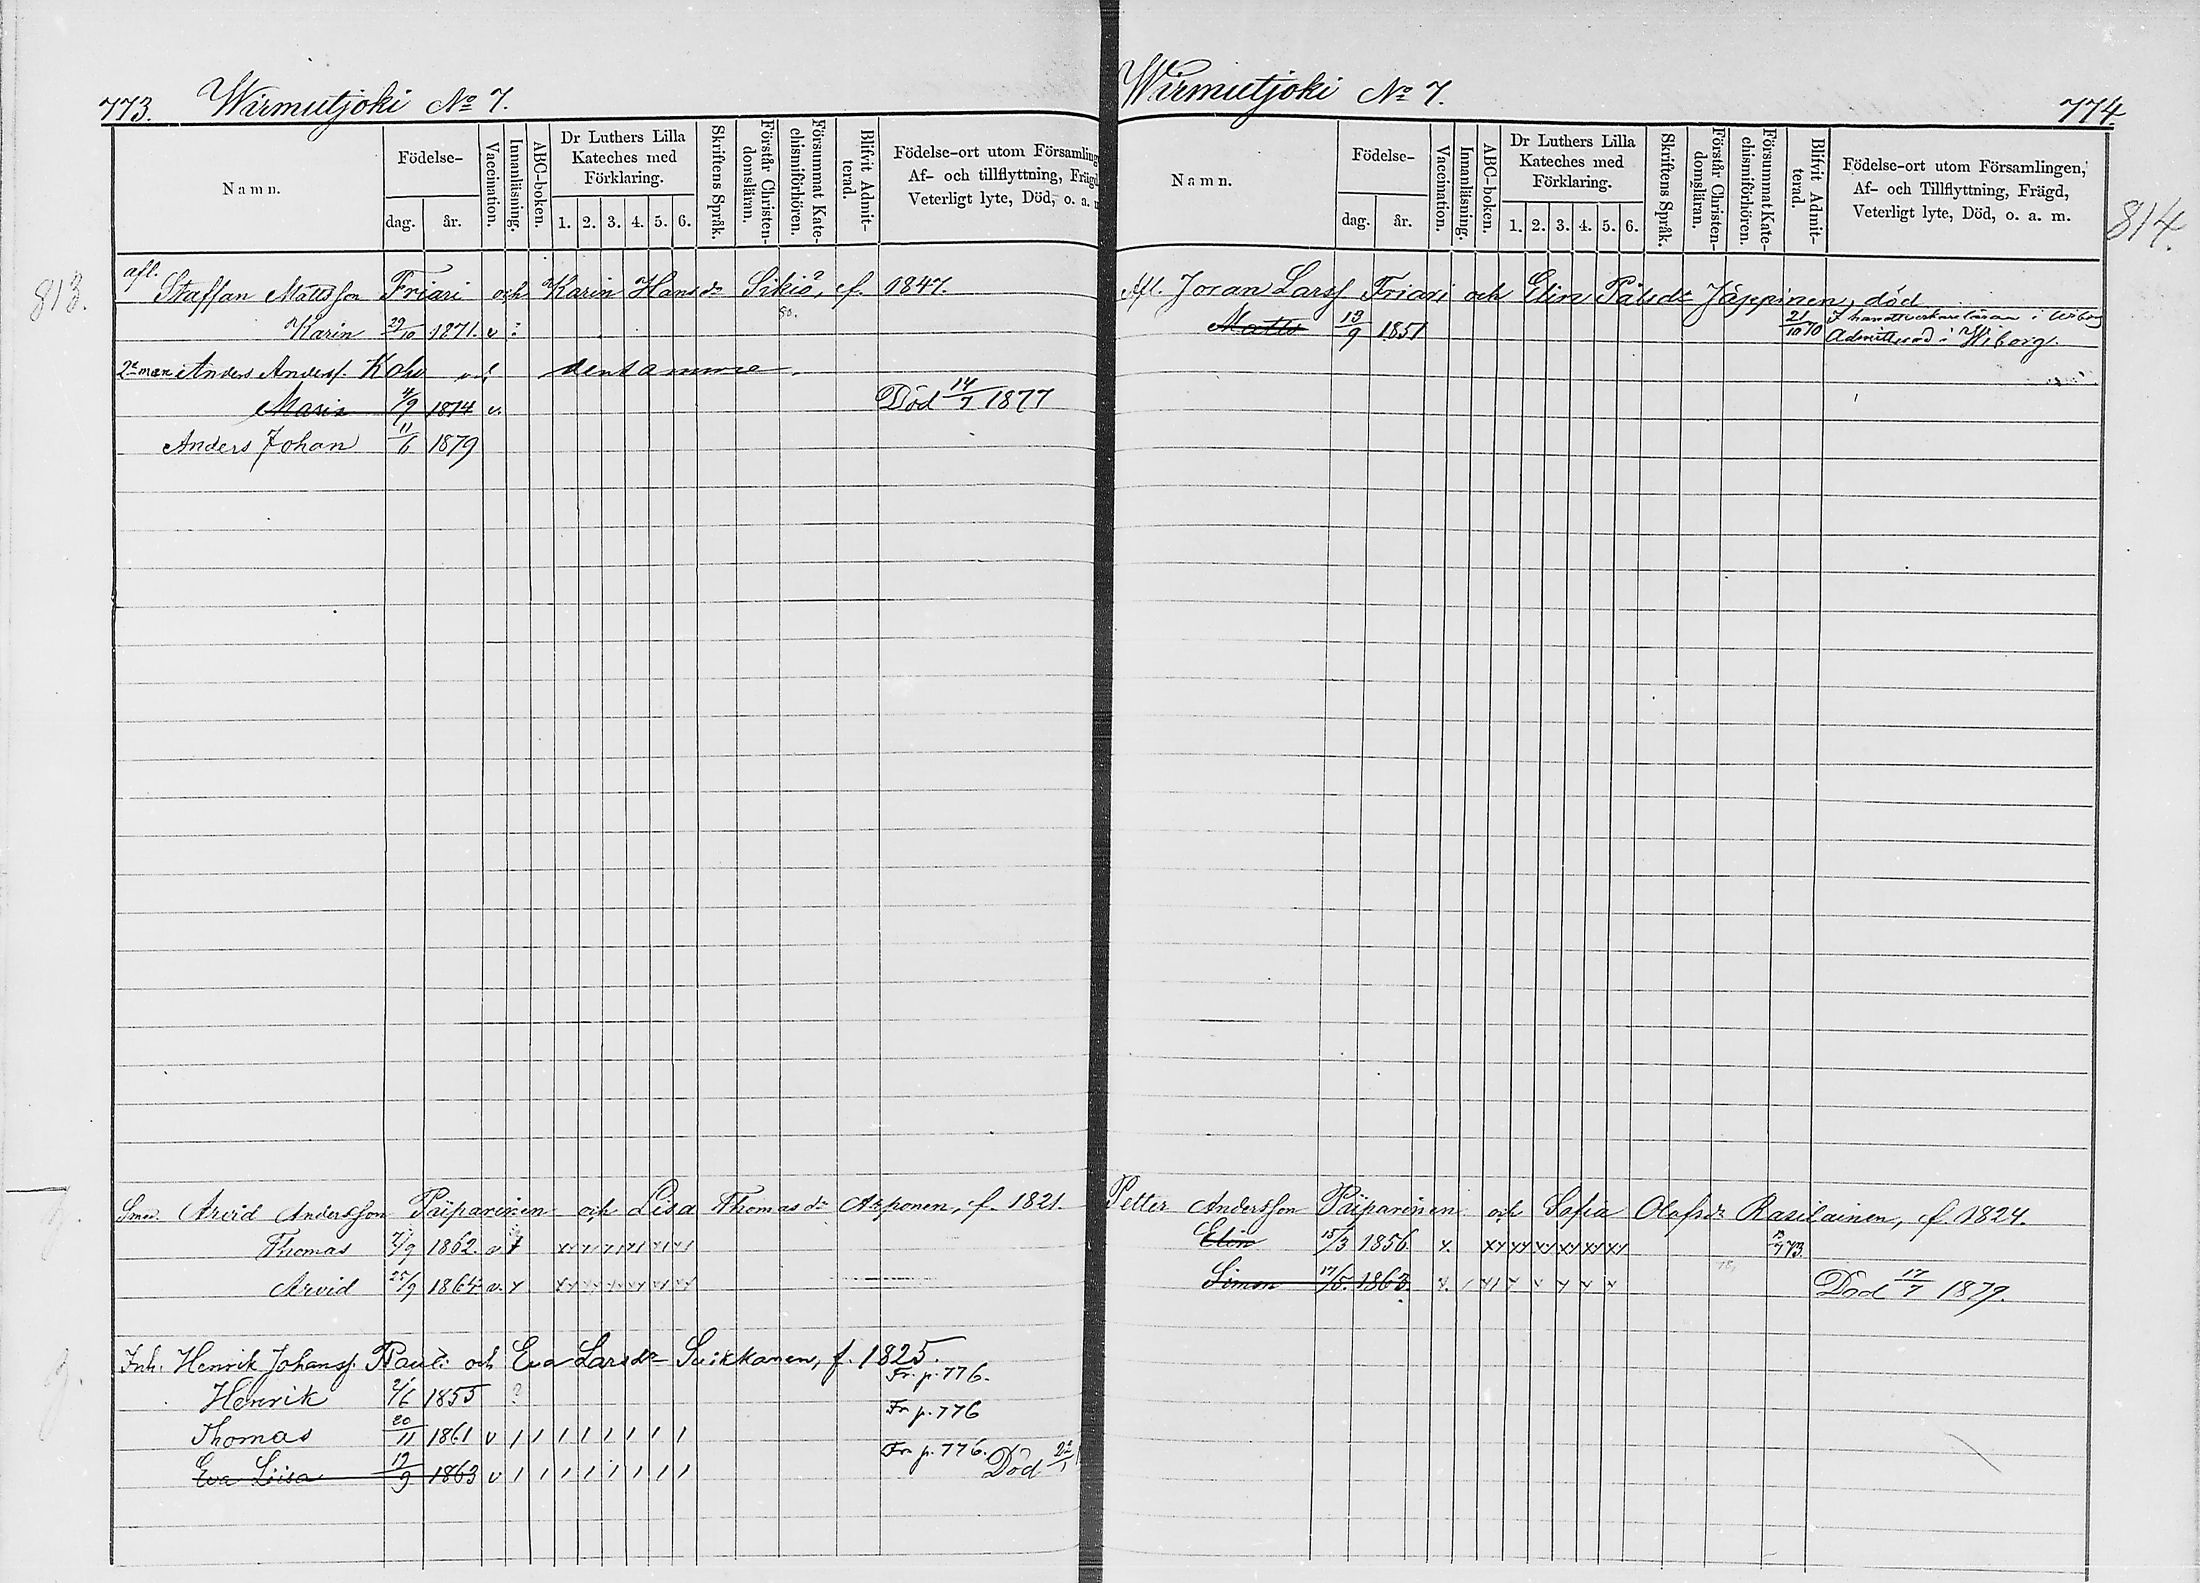 773. Wirmutjoki No 7.
Namn.
Födelse-
dag. år.
Vaccination.
Innanläsning.
ABC-boken.
Dr Luthers Lilla
Kateches med
Förklaring.
1. 2. 3. 4. 5. 6.
Skriftens Språk.
Förstår Christen-
domsläran.
Försummat Kate-
chismiförhören.
Blifvit Admit-
terad.
Födelse-ort utom Församling
Af- och tillflyttning, Frägd
Veterligt lyte, Död, o. a. m
813.
afl. Staffan Mattsson Friari och Karin Hansdr Sikiö, f. 1847.
Karin 29/10 1871. v ?
2e man Anders Anderss. Kohr densamma.
Maria 4/9 1874 v. Död 14/7 1877
Anders Johan 11/6 1879
Smed. Arvid Andersson Päiparinen och Lisa Thomasdr Apponen, f. 1821.
Thomas 1862. v.
Arvid 25/9 1864 v. x
Inh. Henrik Johanss. Pauli och Eva Larsdr Suikkanen, f. 1825.
Fr. p. 776.
Henrik 2/6 1855 ? Fr p. 776
Thomas 20/11 1861 v / / / / / / / /
Fr p. 776.
Eva Liisa 19/9 1863 v / / / / / / / / Död 22/1
Wirmutjoki No 7. 774.
Namn.
Födelse-
dag. år.
Vaccination.
Innanläsning.
ABC-boken.
Dr Luthers Lilla
Kateches med
Förklaring.
1. 2. 3. 4. 5. 6.
Skriftens Språk.
Förstår Christen-
domsläran.
Försummat Kate-
chismiförhören.
Blifvit Admit-
terad.
Födelse-ort utom Församlingen,
Af- och Tillflyttning, Frägd,
Veterligt lyte, Död, o. a. m.
814.
Afl. Joran Larss Friari och Elin Pålsdr Jäppinen, död
Matts 13/9 1851 21/10 70 I handtverkareläran i Wiborg
Admitterad i Wiborg.
Petter Andersson Päiparinen och Sofia Olofsdr Rasilainen, f. 1824.
Elin 15/3 1856 x. xx xx xx xx xx xx 73.
Simon 17/5. 1863. Död 17/7 1879.